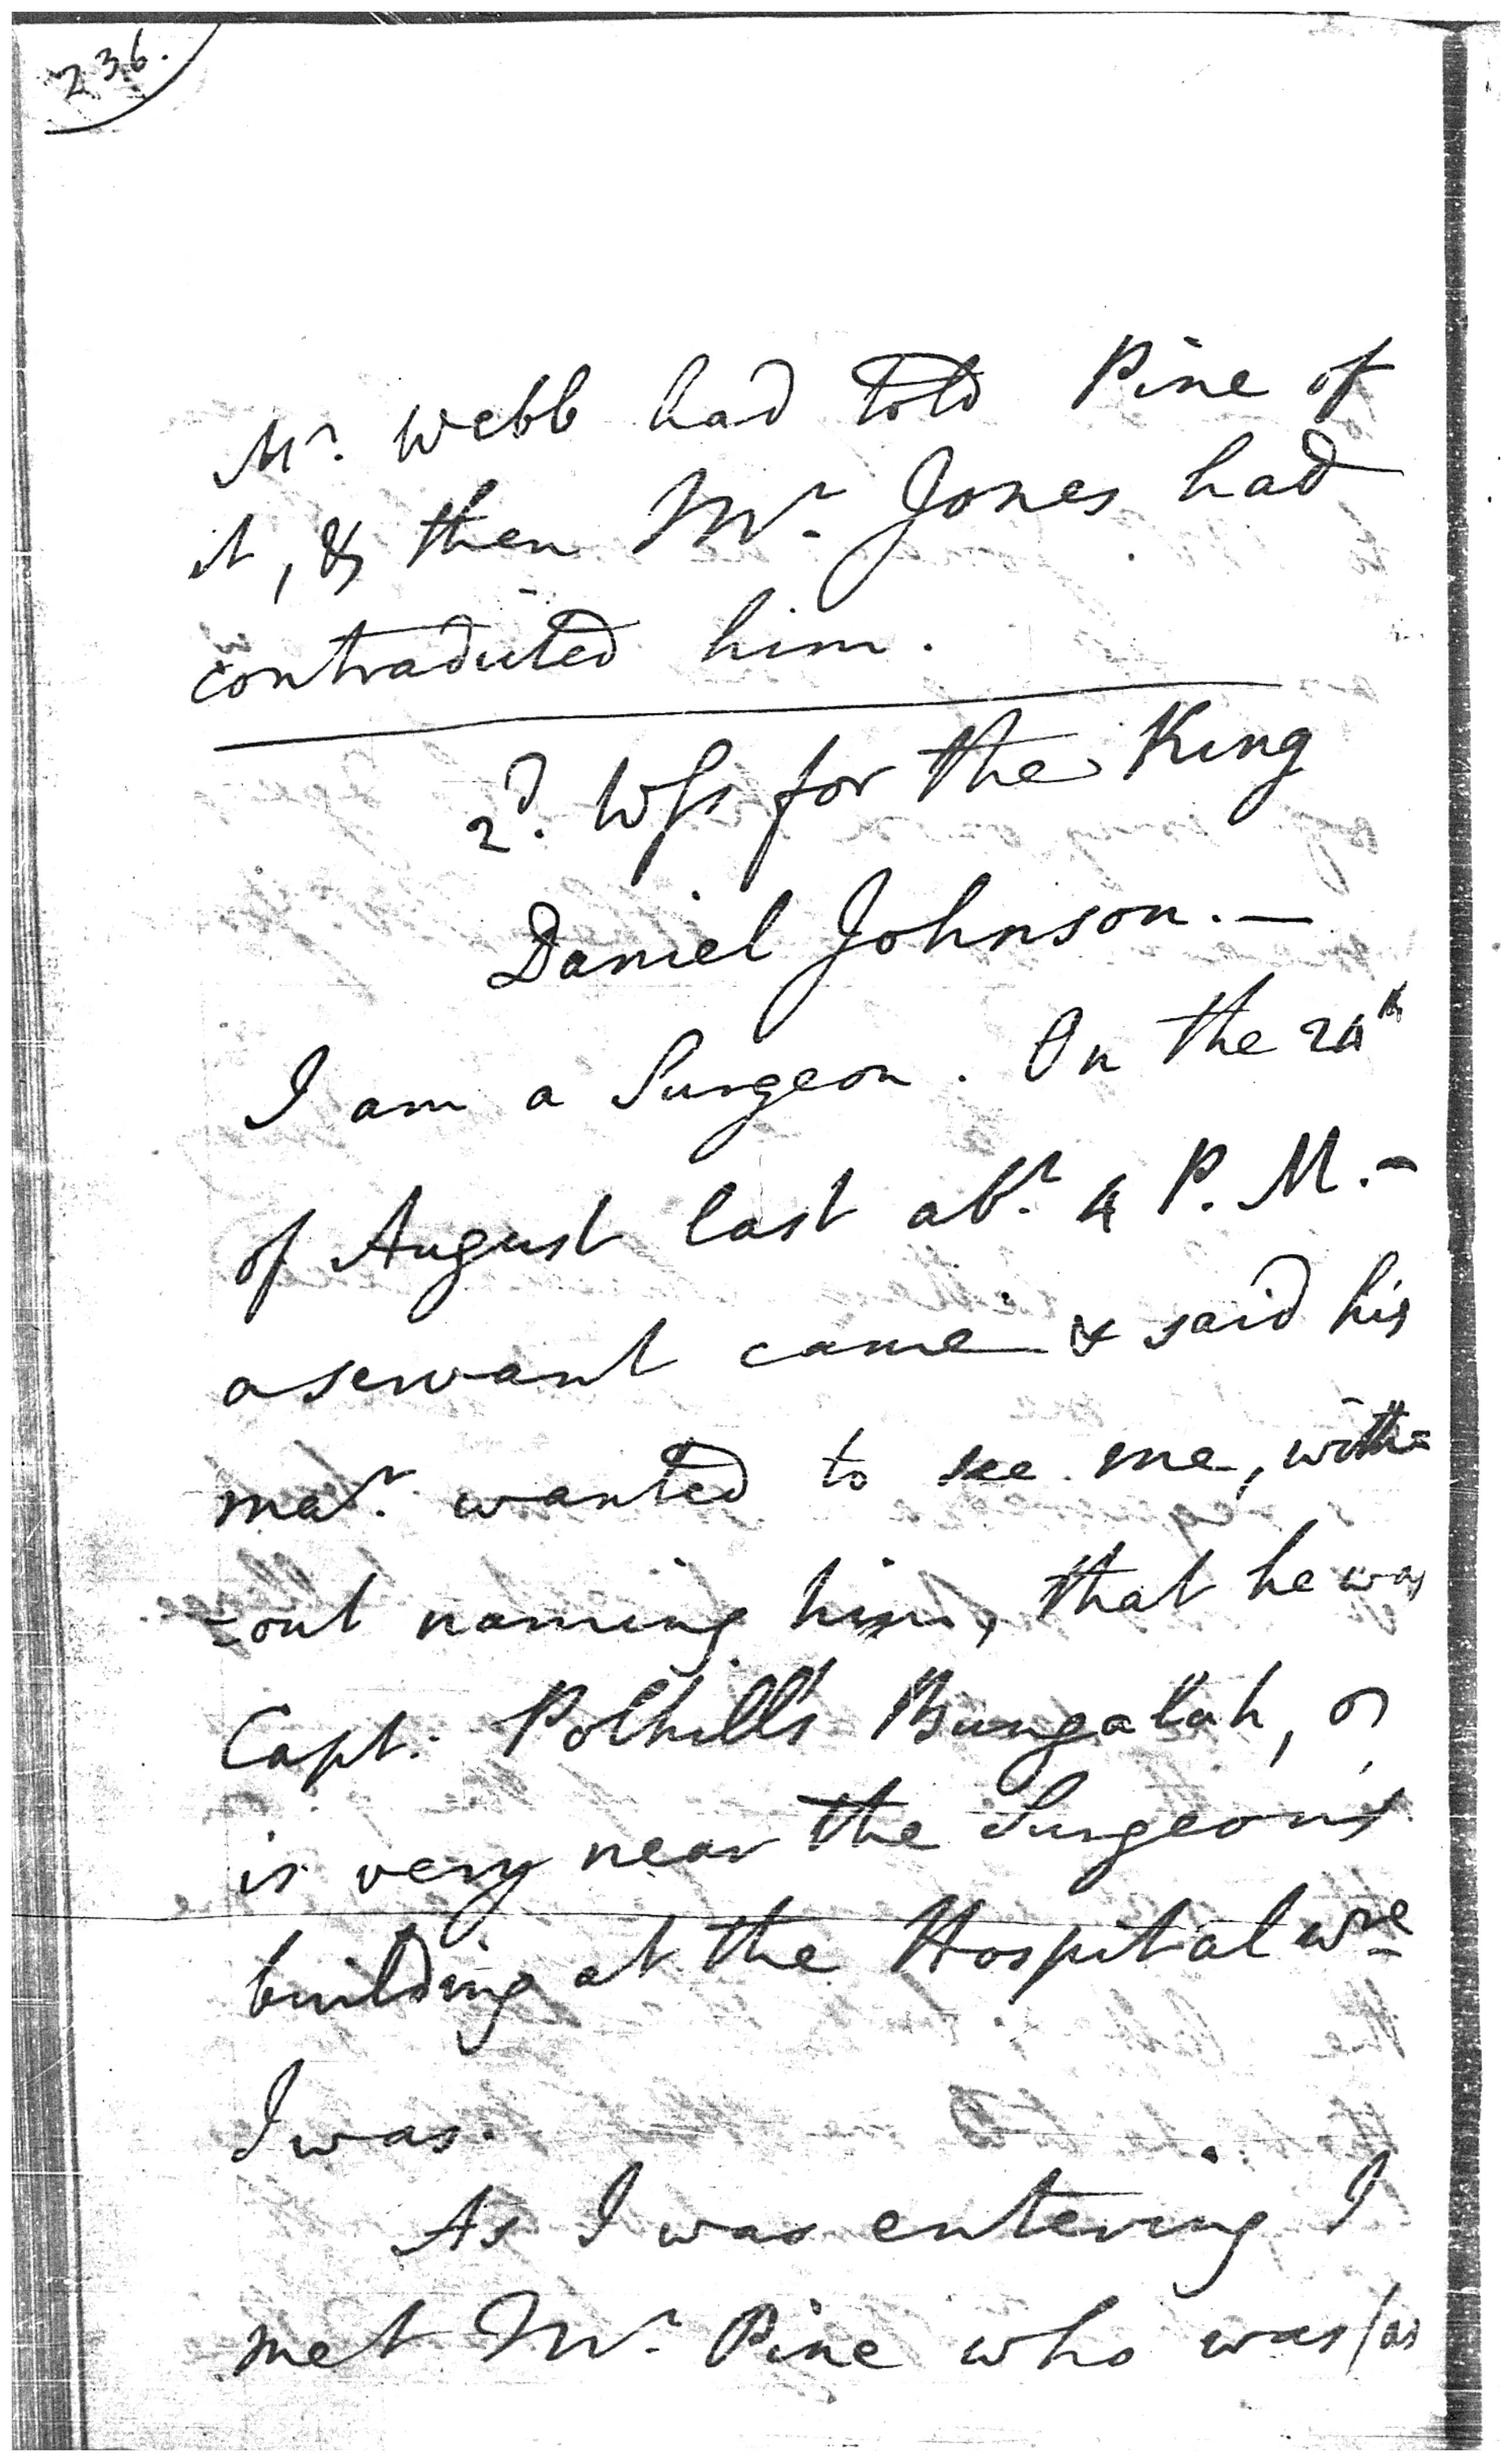 236.
Mr. Webb had told Pine of
it, & then Mr. Jones had
contradicted him.
2d. Wss for the King
Daniel Johnson. —
I am a Surgeon. On the 24th
of August last abt. 4 P. M. -
a servant came & said his
mar. wanted to see me, with=
=out naming him, that he was
Capt. Polhill's Bungalah,
is very near the Surgeon's
building at the Hospital wre
I was.
As I was entering I
met Mr. Pine who was (as